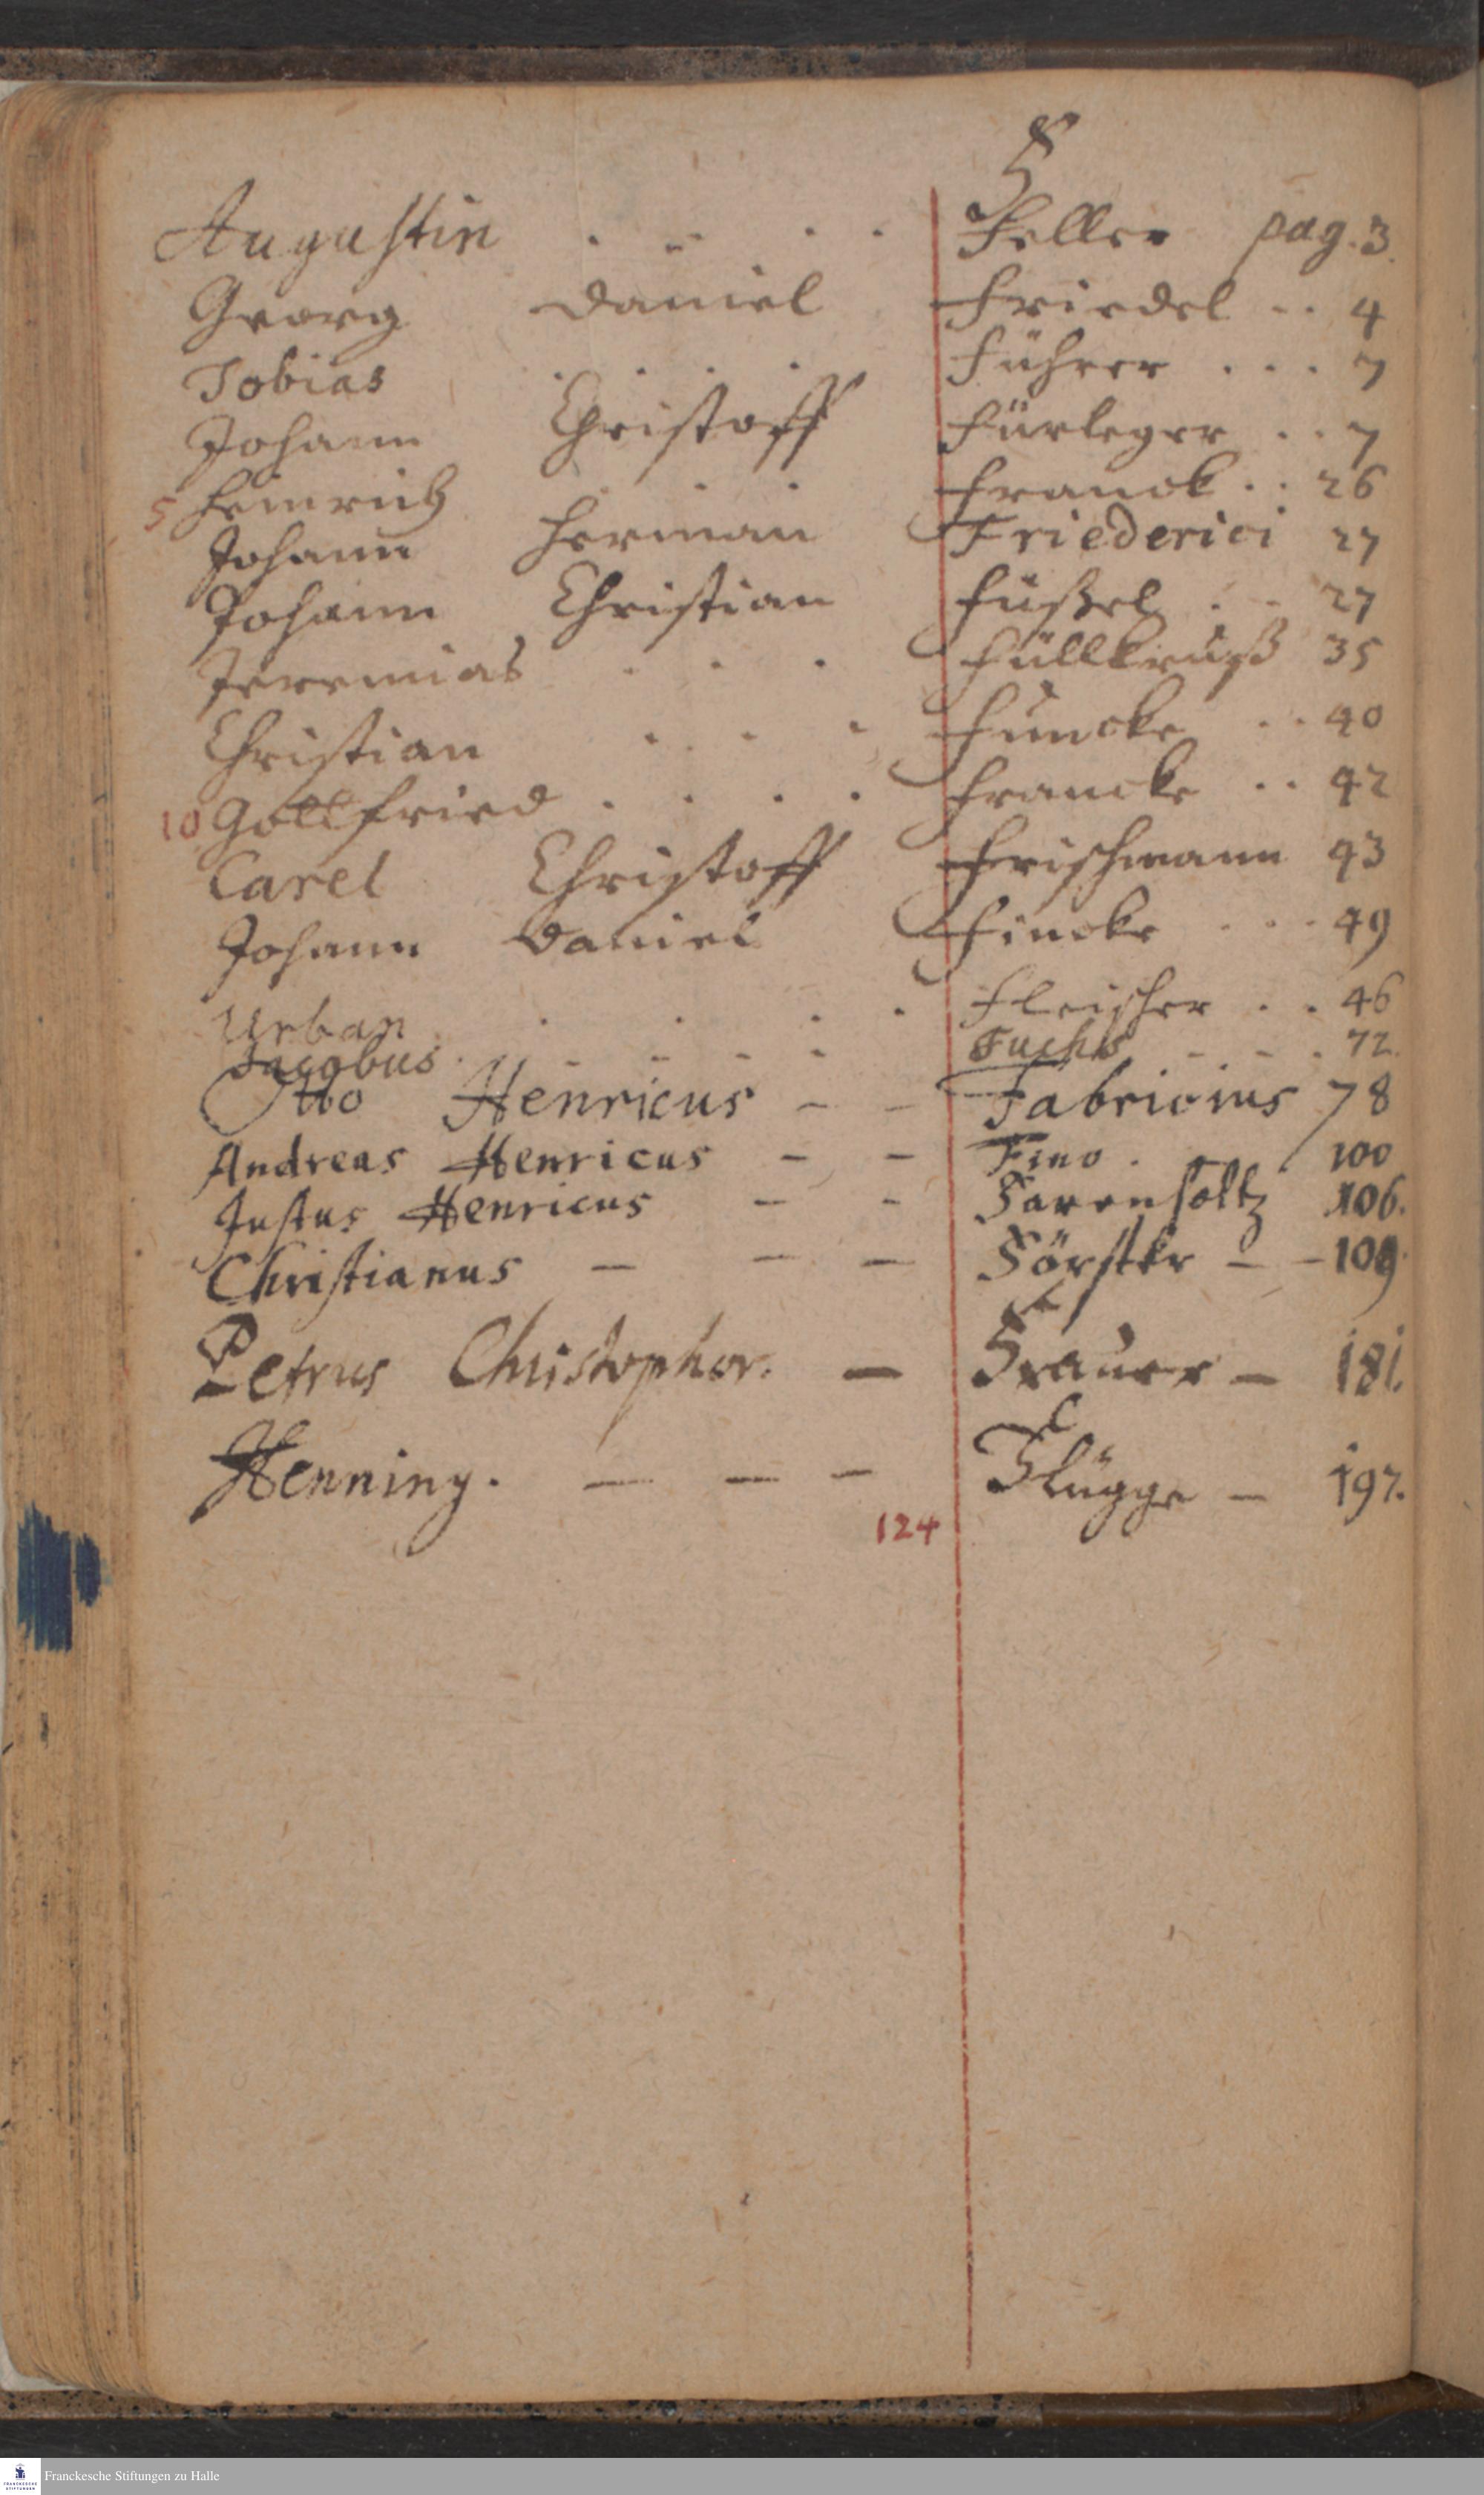 Augustin . . . . Feller pag. 3.
Georg Daniel Friedel . . 4
Tobias . . . . Führer . . . 7
Johann Christoff Fürleger . . 7
5 Heinrich . . . Franck . . 26
Johann Herman Friederici 27
Johann Christian Füßel . . 27
Jeremias . . . Füllkruß 35
Christian . . . . Funcke . . 40
10 Gottfried . . . . Francke . . 42
Carel Christoff Frischmann 43
Johann Daniel Fincke . . . 49
Urban . . . . Fleischer . . 46
Jacobus . - - - - Fuchs - - . 72.
Otto Henricus - - Fabricius 78
Andreas Henricus - - Fino . . . 100
Justus Henricus - - Farenholtz 106.
Christianus - - - Förster - - 109.
Petrus Christophor. - Frauer - 181.
Henning. - - - Flügge - 197.
124
Franckesche Stiftungen zu Halle